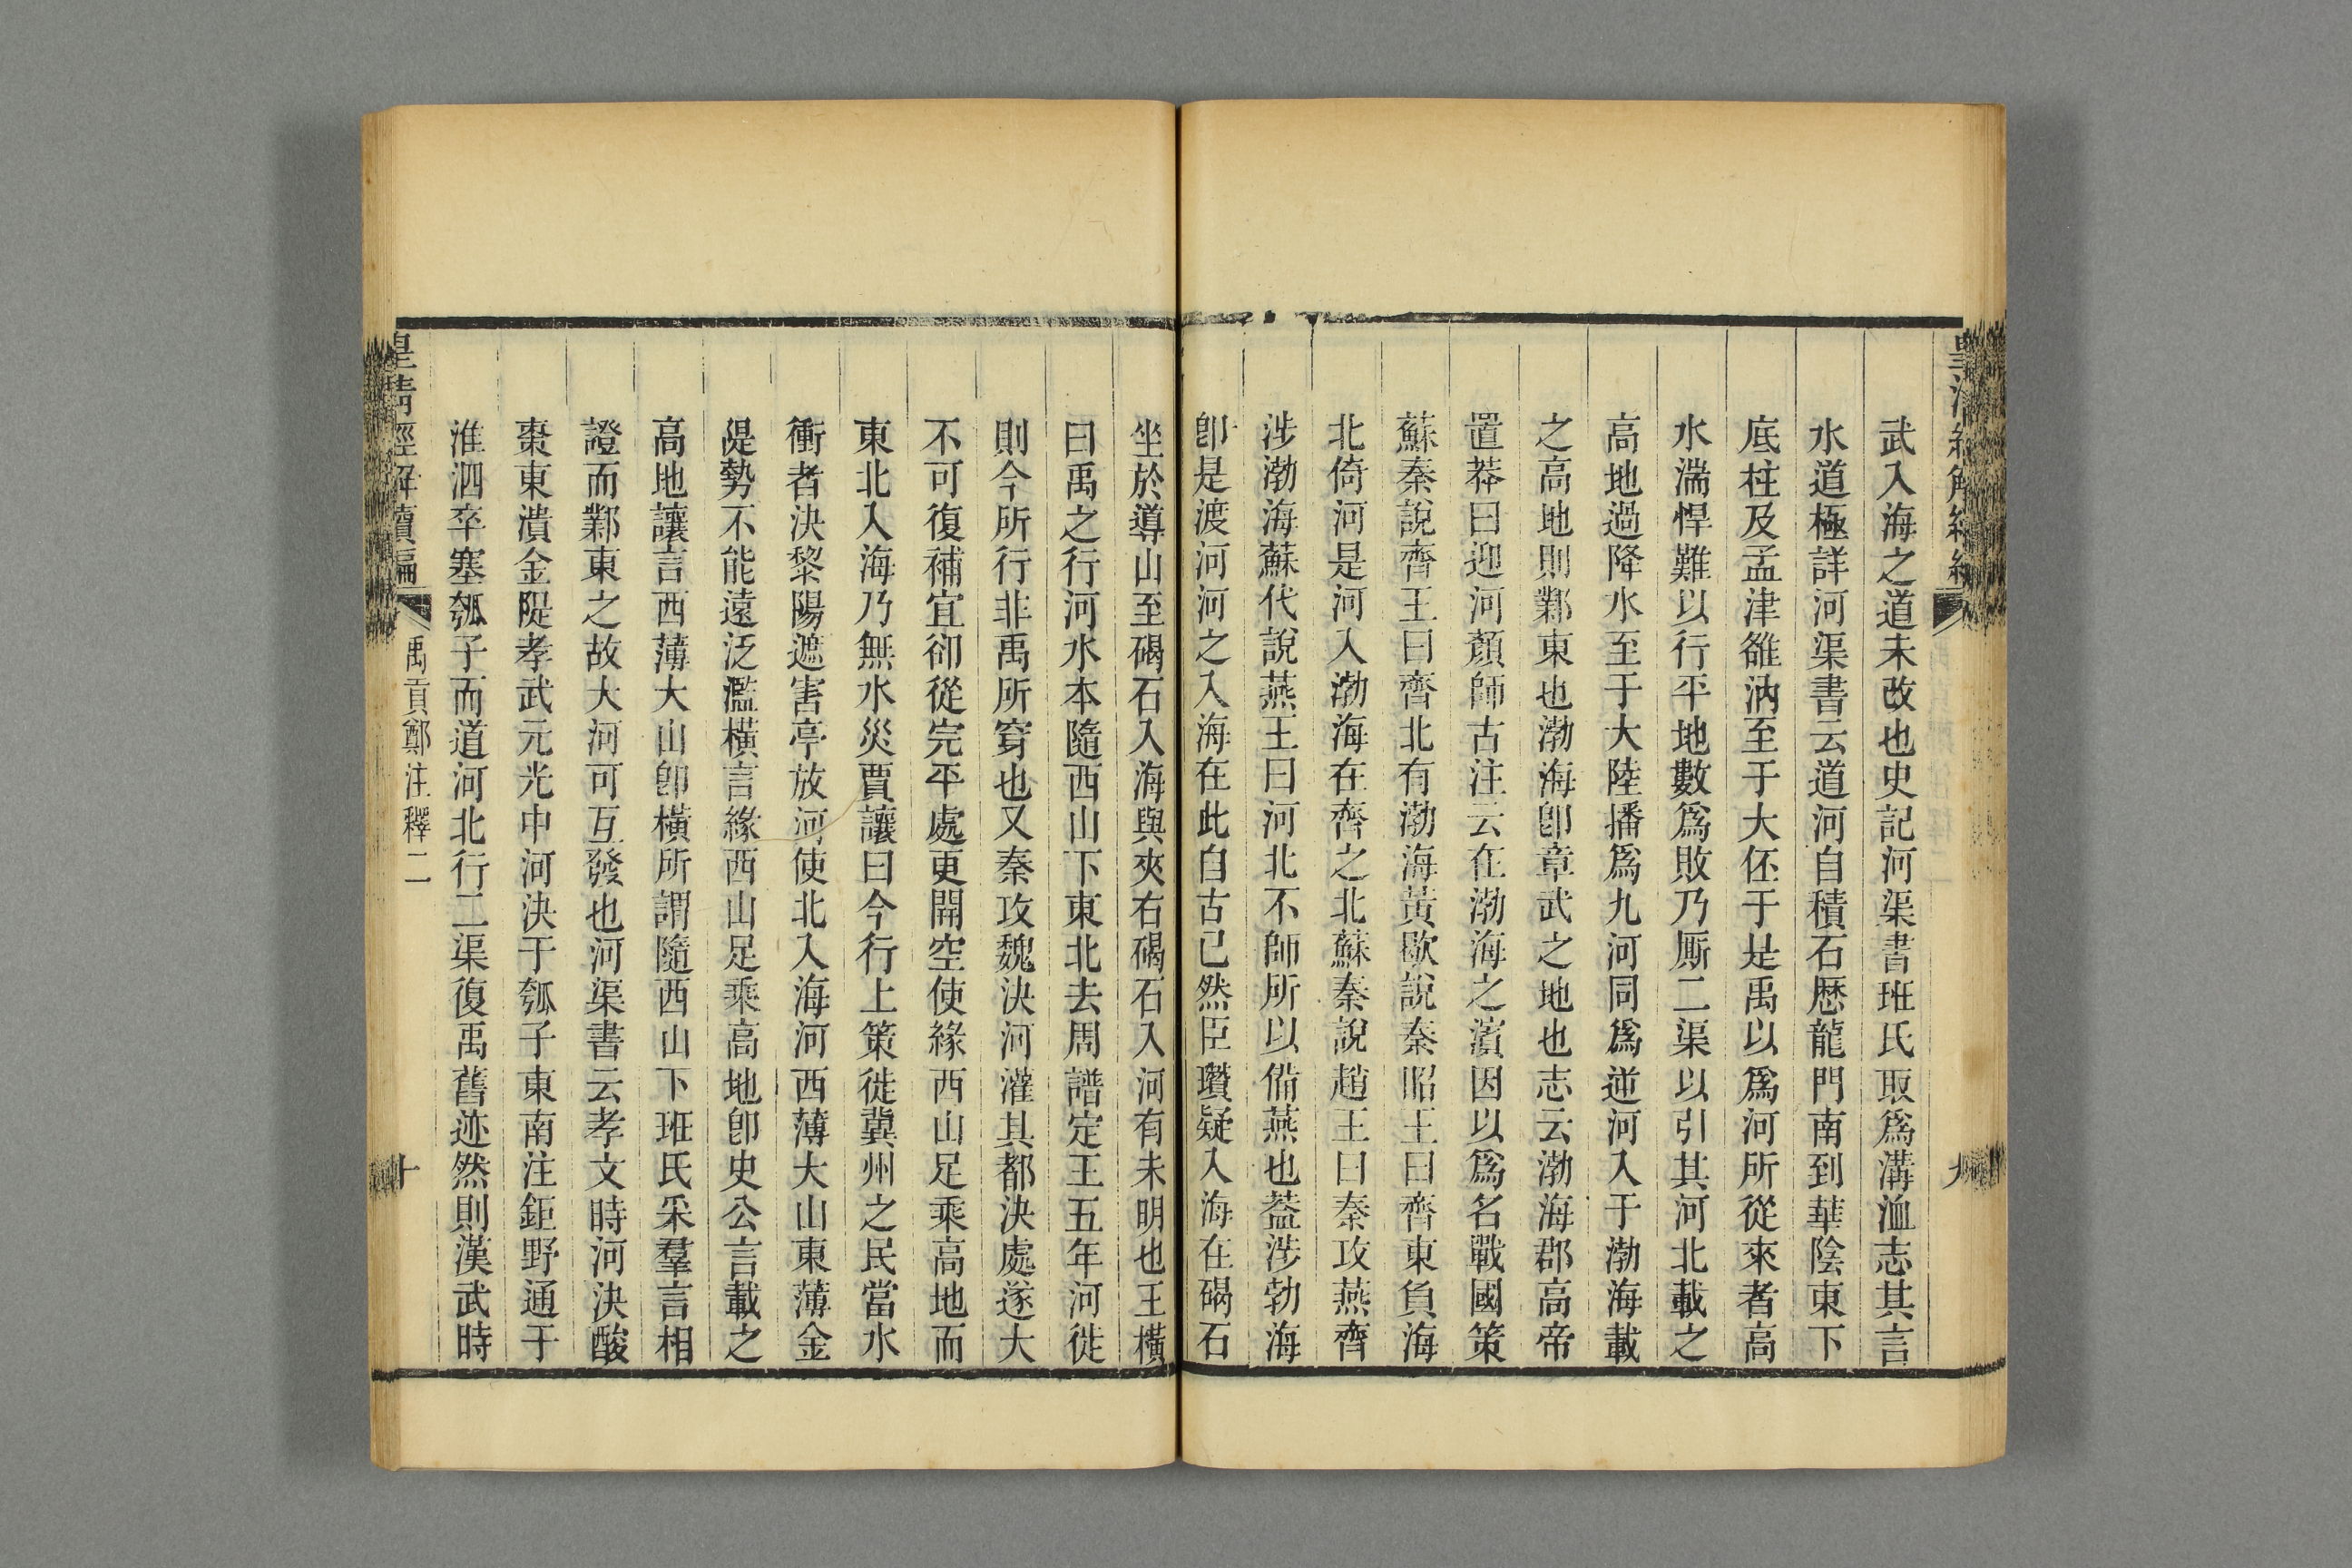 武入海之道未改也史記河渠書班氏取爲溝洫志其言
水道極詳河渠書云道河自積石歷龍門南到華陰東下
底柱及孟津雒汭至于大伾于是禹以爲河所從來者高
水湍悍難以行平地數爲敗乃厮二渠以引其河北載之
高地過降水至于大陸播爲九河同爲逆河入于渤海載
之高地則鄴東也渤海卽章武之地也志云渤海郡高帝
置莽曰迎河顏師古注云在渤海之濱因以爲名戰國策
蘇秦說齊王曰齊北有渤海黃歇說秦昭王曰齊東負海
北倚河是河入渤海在齊之北蘇秦說趙王曰秦攻燕齊
涉渤海蘇代說燕王曰河北不師所以備燕也葢涉勃海
卽是渡河河之入海在此自古已然臣瓚疑入海在碣石
坐於導山至碣石入海與夾右碣石入河有未明也王橫
曰禹之行河水本隨西山下東北去周譜定王五年河徙
則今所行非禹所穿也又秦攻魏決河灌其都決處遂大
不可復補宜卻從完平處更開空使緣西山足乘高地而
東北入海乃無水災賈讓曰今行上策徙冀州之民當水
衝者決黎陽遮害亭放河使北入海河西薄大山東薄金
隄勢不能遠泛濫橫言緣西山足乘高地卽史公言載之
高地讓言西薄大山卽橫所謂隨西山下班氏采羣言相
證而鄴東之故大河可互發也河渠書云孝文時河決酸
棗東潰金隄孝武元光中河決于瓠子東南注鉅野通于
淮泗卒塞瓠子而道河北行二渠復禹舊迹然則漢武時
皇清經解續編
禹貢鄭注釋二
十